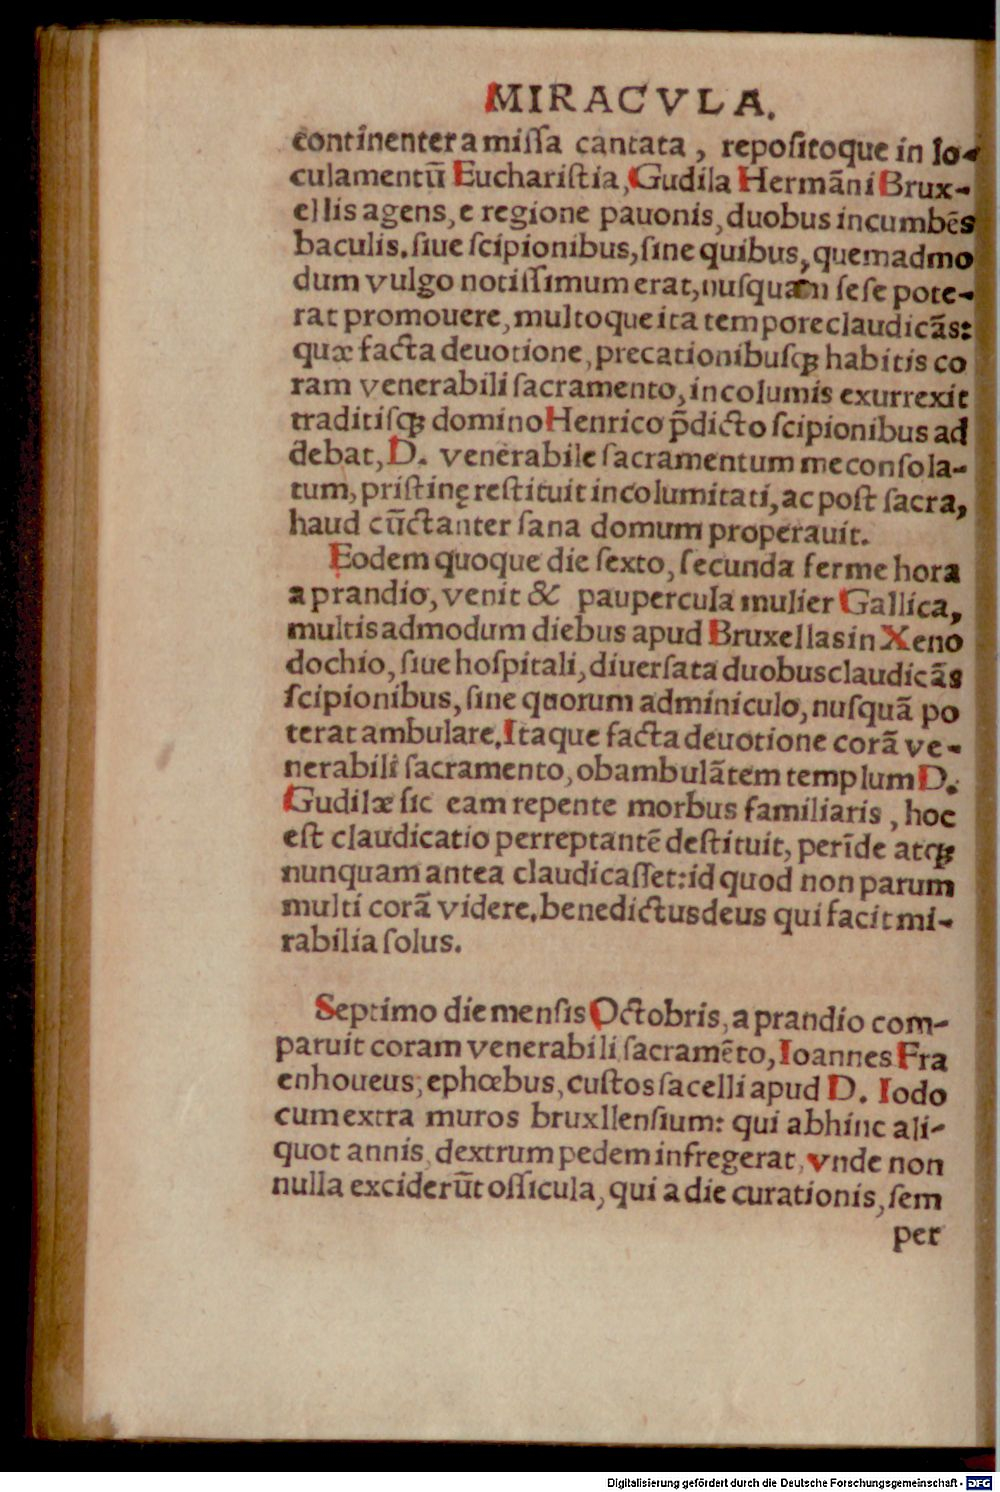 MIRACVLA.
continenter a missa cantata, repositoque in lo-
culamentū Eucharistia, Gudila Hermāni Brux-
ellis agens, e regione pauonis, duobus incumbēs
baculis. siue scipionibus, sine quibus, quemadmo
dum vulgo notissimum erat, nusquam sese pote-
rat promouere, multoque ita tempore claudicās:
quæ facta deuotione, precationibusqꝫ habitis co
ram venerabili sacramento, incolumis exurrexit
traditisqꝫ domino Henrico p̄dicto scipionibus ad
debat, D. venerabile sacramentum me consola-
tum, pristinę restituit incolumitati, ac post sacra,
haud cūctanter sana domum properauit.
Eodem quoque die sexto, secunda ferme hora
a prandio, venit & paupercula mulier Gallica,
multis admodum diebus apud Bruxellas in Xeno
dochio, siue hospitali, diuersata duobus claudicās
scipionibus, sine quorum adminiculo, nusquā po
terat ambulare. Itaque facta deuotione corā ve-
nerabili sacramento, obambulātem templum D.
Gudilæ sic eam repente morbus familiaris, hoc
est claudicatio perreptantē destituit, perīde atqꝫ
nunquam antea claudicasset: id quod non parum
multi corā videre. benedictus deus qui facit mi-
rabilia solus.
Septimo die mensis Octobris, a prandio com-
paruit coram venerabili sacramēto, Ioannes Fra
enhoueus, ephœbus, custos sacelli apud D. Iodo
cum extra muros bruxllensium: qui abhinc ali-
quot annis, dextrum pedem infregerat, vnde non
nulla exciderūt ossicula, qui a die curationis, sem
per
Digitalisierung gefördert durch die Deutsche Forschungsgemeinschaft - DFG